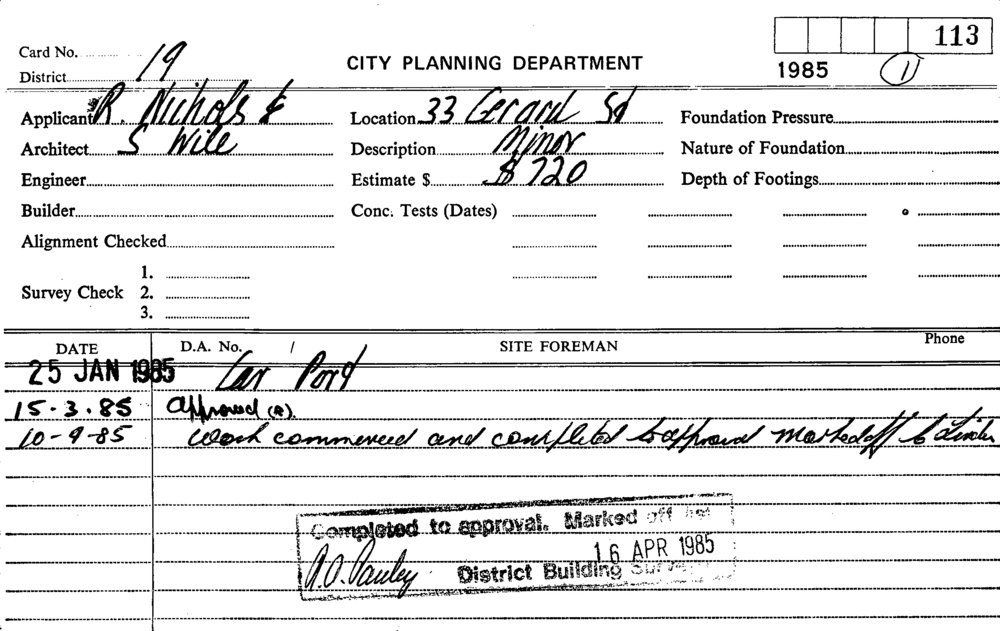 113
Card No.
CITY PLANNING DEPARTMENT
1985 1
District 19
Applicant R. Nichols & Location 33 Gerard St Foundation Pressure
Architect S Wile Description Minor Nature of Foundation
Engineer Estimate $ $ 720 Depth of Footings
Builder Conc. Tests (Dates)
Alignment Checked
1.
Survey Check 2.
3.
DATE D.A. No. / SITE FOREMAN Phone
25 JAN 1985 Car Port
15.3.85 Approved (R).
10-9-85 Work commenced and completed to approval Marked off
Completed to approval. Marked off
16 APR 1985
A.O. Pauley District Building